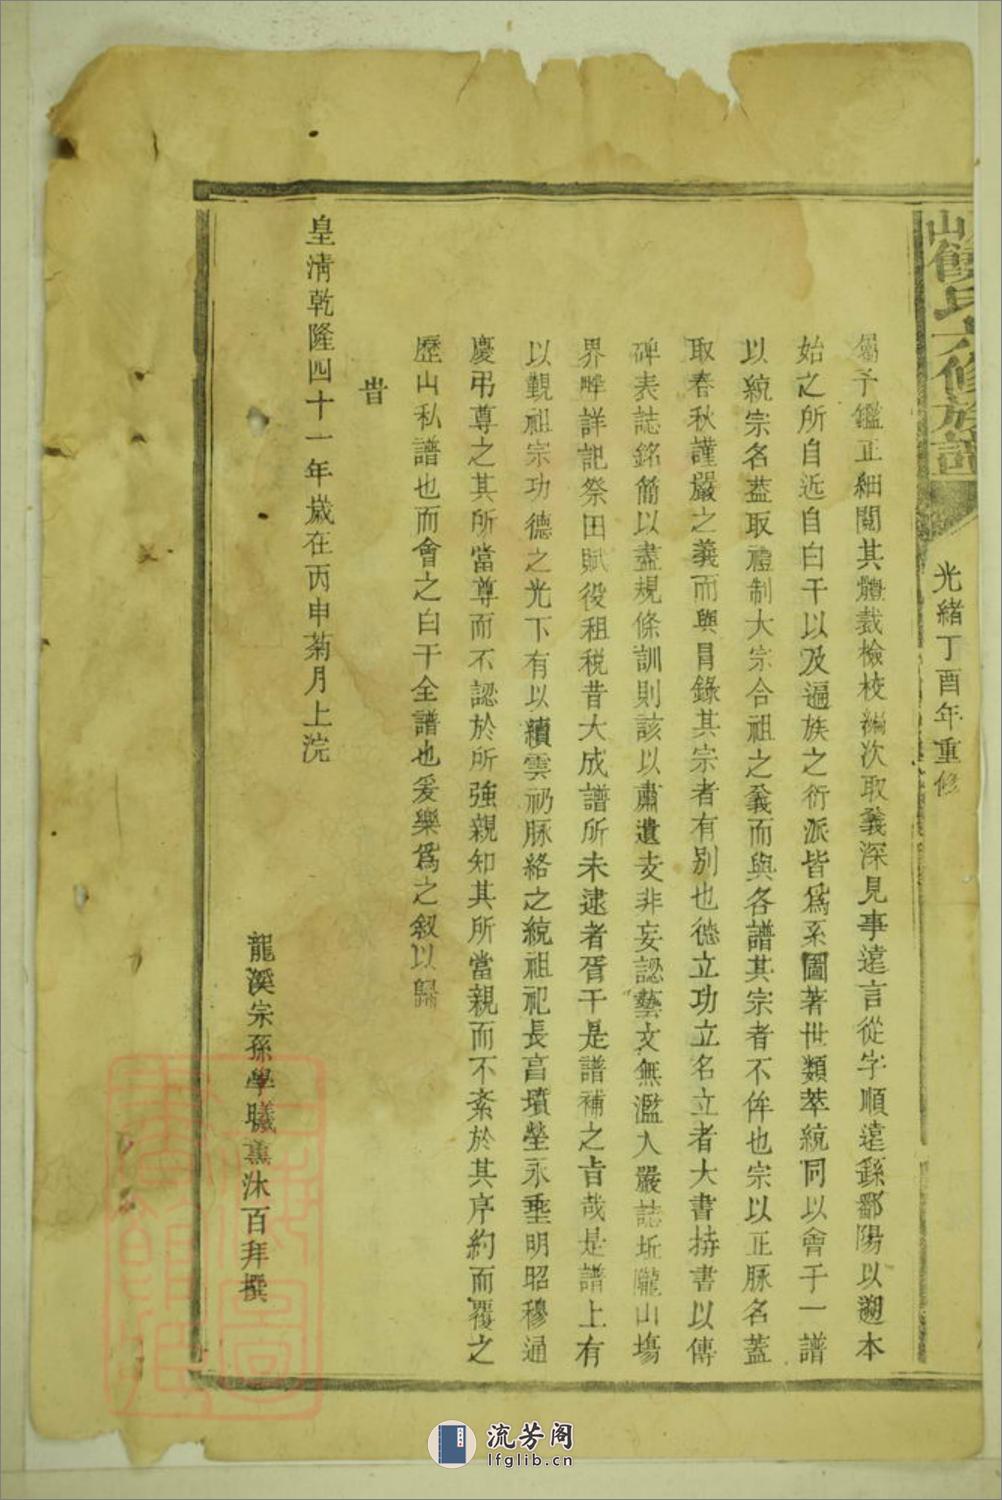 山饒氏六修族譜
光緒丁酉年重修
屬予鑑正細閱其體裁檢校編次取義深見事遠言從字順遠繇鄱陽以遡本
始之所自近自白干以及遍族之衍派皆爲系圖著世類萃統同以會于一譜
以統宗名葢取禮制大宗合祖之義而與各譜其宗者不侔也宗以正脈名蓋
取春秋謹嚴之義而與冐錄其宗者有别也德立功立名立者大書特書以傳
碑表誌銘簡以盡規條訓則該以肅遺支非妄認藝文無濫入嚴誌坵隴山塲
界畔詳記祭田賦役租税昔大成譜所未逮者胥于是譜補之旨哉是譜上有
以觀祖宗功德之光下有以續雲礽脈絡之統祖祀長昌墳塋永垂明昭穆通
慶弔尊之其所當尊而不認於所強親知其所當親而不紊於其序約而覆之
歷山私譜也而會之白干全譜也爰樂爲之叙以歸
旹
皇清乾隆四十一年歲在丙申菊月上浣
龍溪宗孫學曦薰沐百拜撰
流芳阁
lfglib.cn